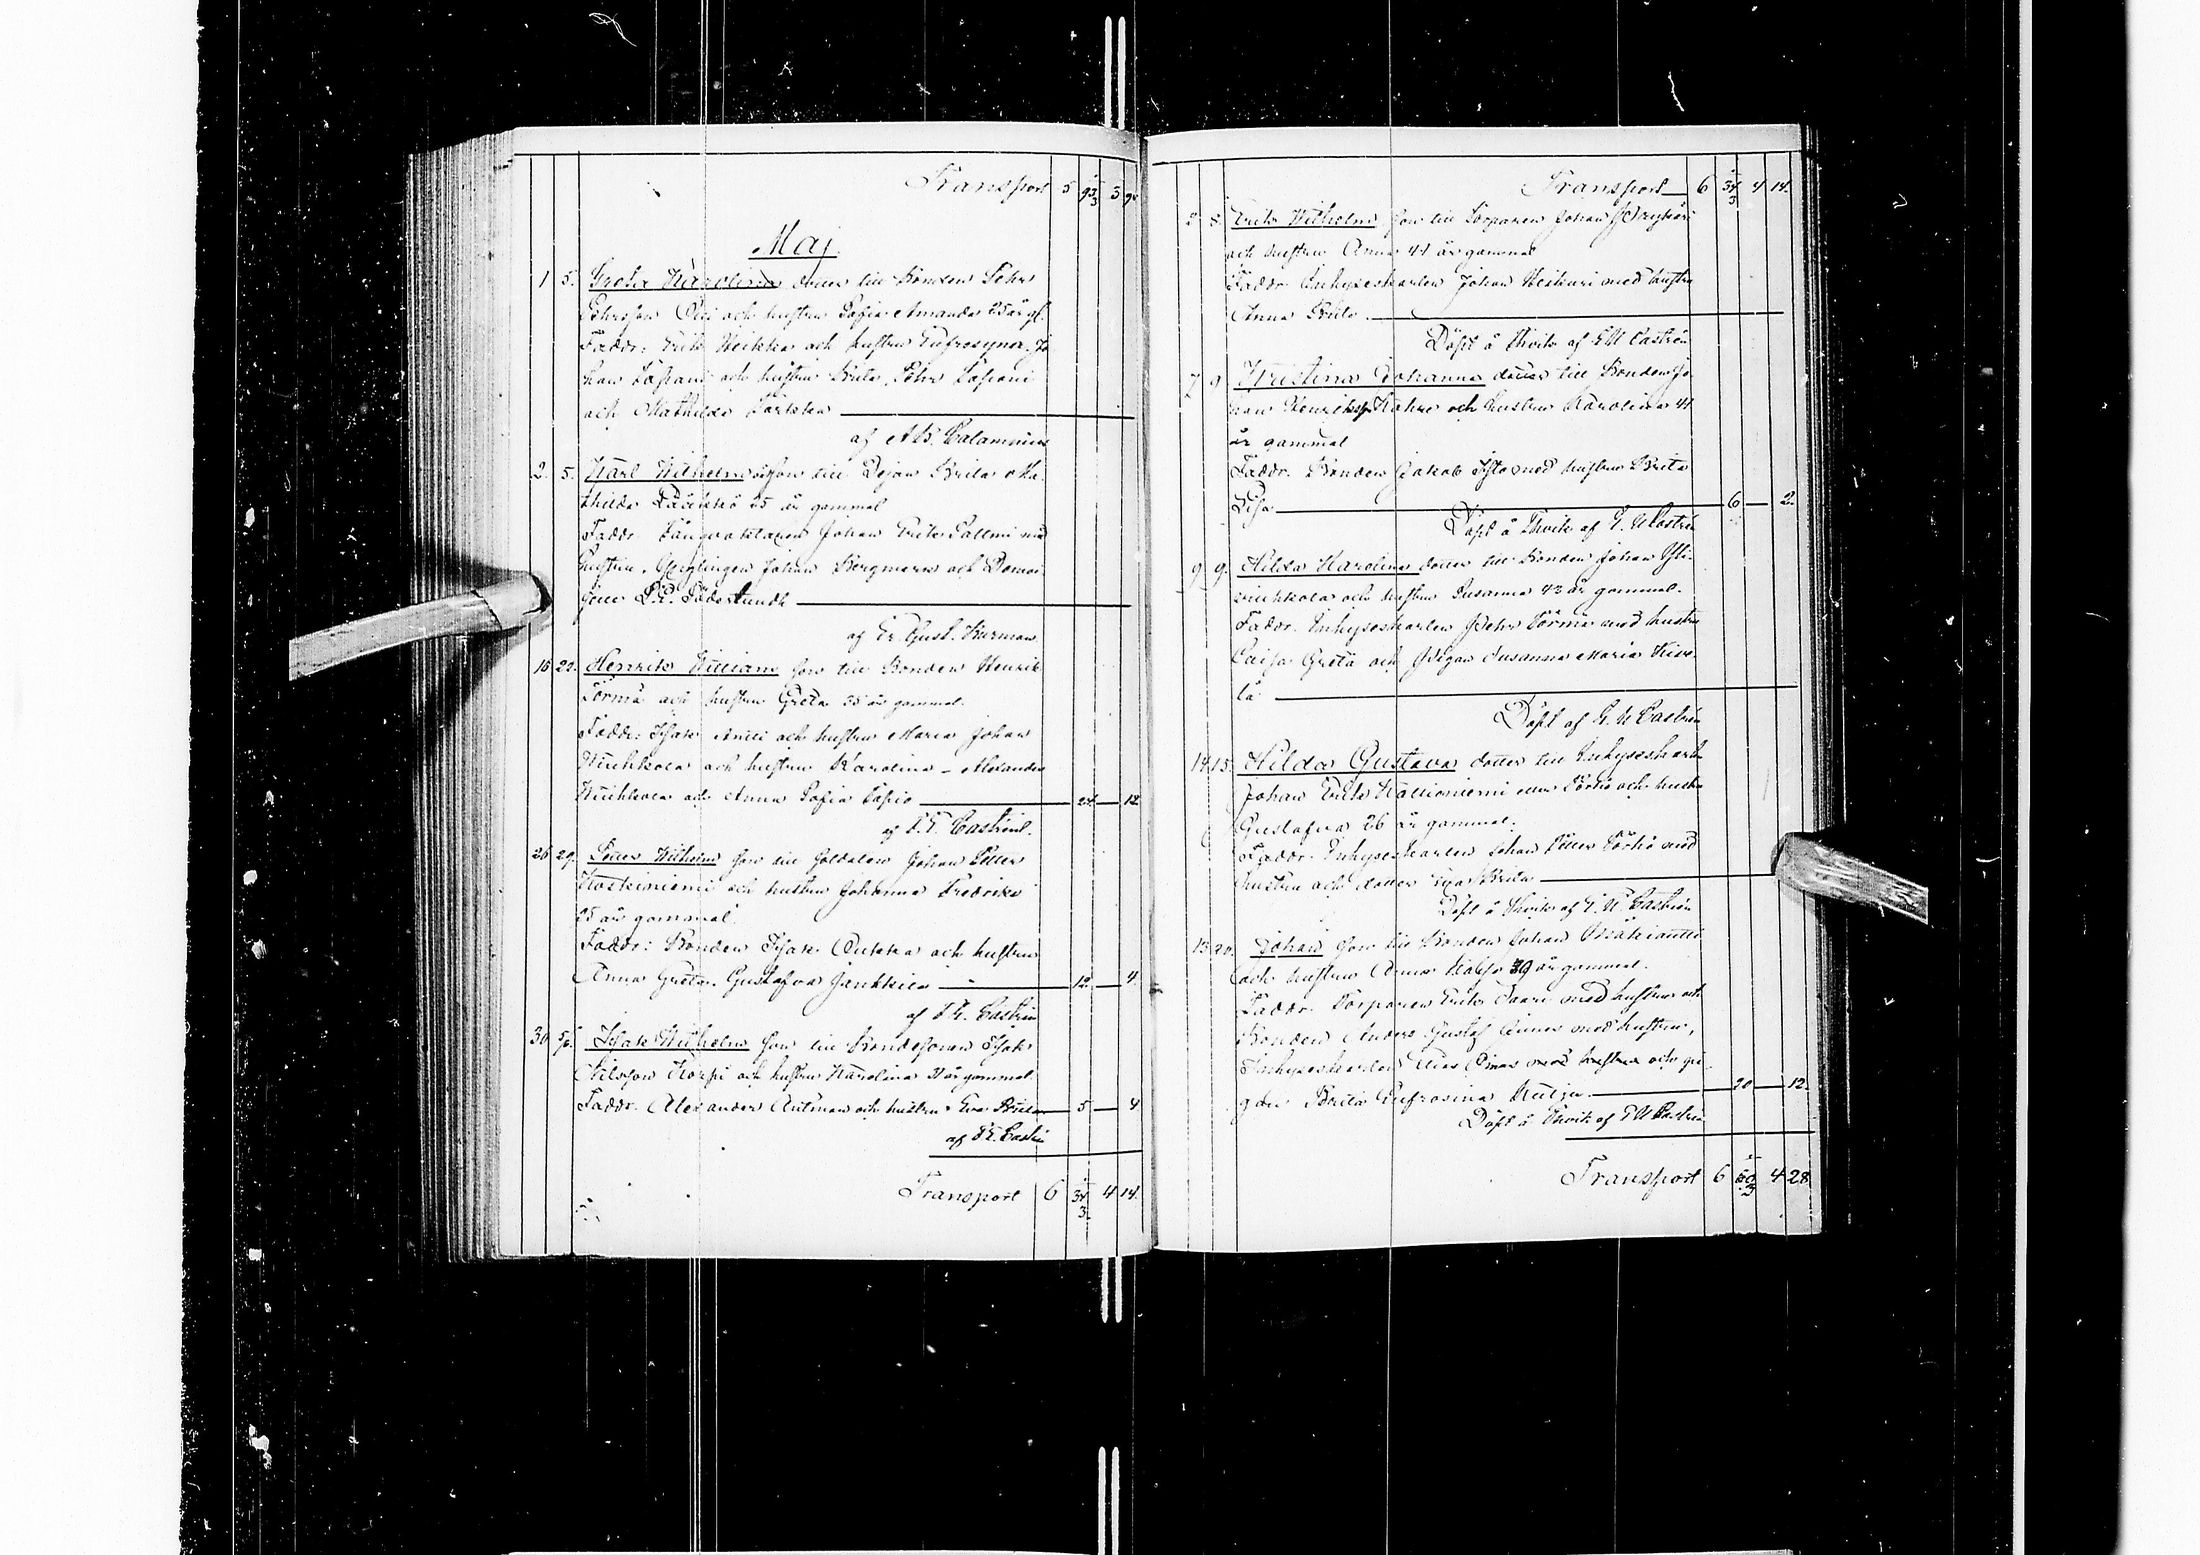 Transport 5 93/3 3 90
Maj.
1 5. Greta Karolina dotter till Bonden Pehr
Pehrsson Oli och hustru Sofia Amanda 25 år gl.
Faddr: Erik Heikka och hustru Eufrosyna, Jo
han Lassani och hustru Brita, Pehr Lassani
och Mathilda
af A.B. Calamnius
2. 5. Karl Wilhelm son till Pejan Brita Ma
thilda 25 år gammal
Faddr. Johan Erik med
hustru, Ynglingen Johan Bergman och Demoi
sellen Söderlundh
af Gust. Burman
15 20. Henrik William son till Bonden Henrik
Törmä och hustru Greta 35 år gammal.
Faddr: Isak Antti och hustru Maria Johan
Niukkola och hustru Karolina - Alexander
Niukkola och Anna Sofia 24 12
af F.E. Castrén.
26 29. Petter Wilhelm son till Soldaten Johan Petter
Koskiniemi och hustru Johanna Fredrika
25 år gammal.
Faddr: Bonden Isak Outtka och hustru
Anna Greta. Gustafva Jankkila 12 4.
af F.E. Castrén
30 5/6. Isak Wilhelm son till Bondesonen Isak
Nilsson Korpi och hustru Karolina 31 år gammal.
Faddr. Alexander Antman och hustru Eva Brita 5 4
af F.E. Castrén
Transport 6 34/3 4 14.
Transport 6 34/3 4 14.
2 8. Erik Wilhelm son till Torparen Johan
och hustru Anna 41 år gammal
Faddr. Inhyseskarlen Johan Heikuri med hustru
Anna Brita.
Döpt å Thvik af E W Castrén
7 9 Kristina Johanna dotter till Bonden Jo
han Henriksson Kähre och hustru Karolina 41
år gammal
Faddr. Bonden Jakob Ista med hustru Brita
Lisa 6 2.
Döpt å Thvik af E. W Castrén
9 9. Hilda Karolina dotter till Bonden Johan Yli
niukkola och hustru Susanna 43 år gammal.
Faddr. Inhyseskarlen Pehr Törmä med hustru
Caisa Greta och Pigan Susanna Maria Kive
lä
Döpt af E. W Castrén
14 15. Hilda Gustava dotter till Inhyseskarlen
Johan Erik Kallioniemi eller Törhö och hustru
Gustafva 26 år gammal.
Faddr. Inhyseskarlen Johan Petter Törhö med
hustru och dotter Eva Brita
Döpt å Thvik af E. W. Castrén
13 20. Johan son till Bonden Johan
och hustru Anna Kaisa 39 år gammal.
Faddr. Torparen Erik Saari med hustru och
Bonden Anders Gustaf med hustru,
Inhyseskarlen Elias med hustru och pi
gan Brita Eufrosina 20 12.
Döpt å Thvik af E W Castrén
Transport 6 60/3 4 28